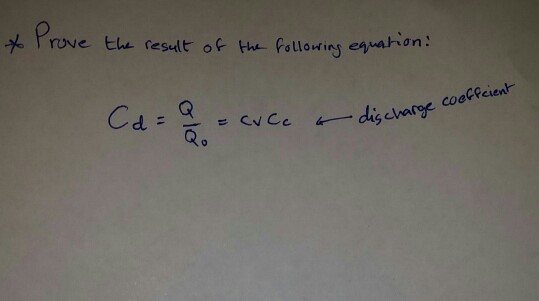 * Prove the result of the following equation:
Cd = Q/Q₀ = CvCc ← discharge coeffcient